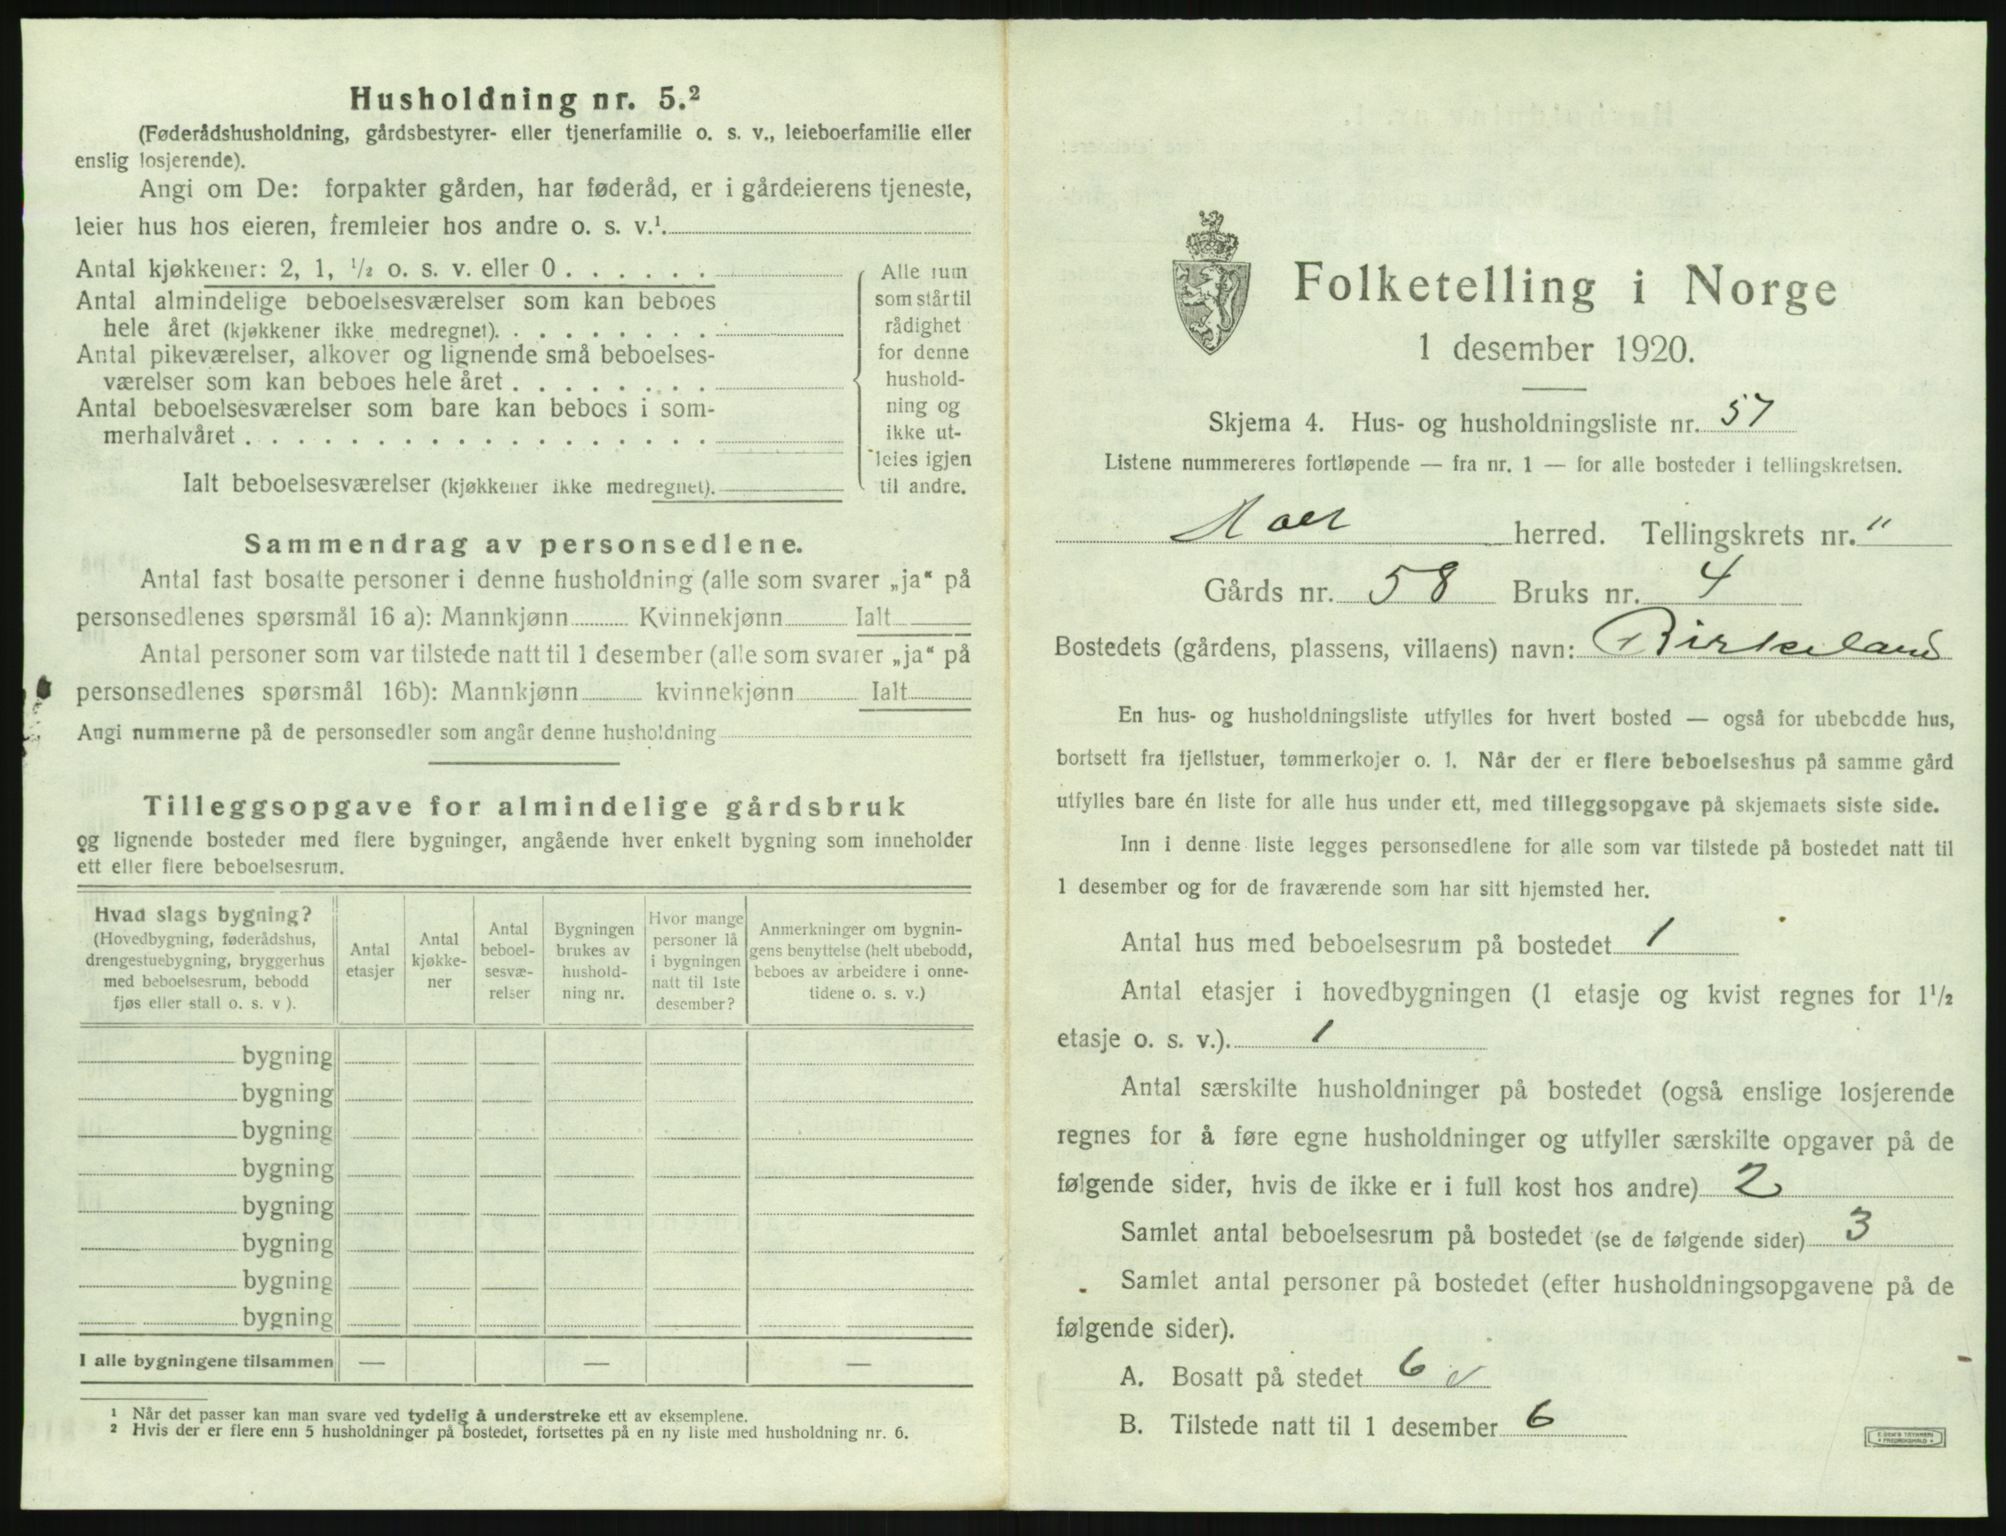 Husholdning nr. 5.²
(Føderådshusholdning, gårdsbestyrer- eller tjenerfamilie o. s. v., leieboerfamilie eller
enslig losjerende).
Angi om De: forpakter gården, har føderåd, er i gårdeierens tjeneste,
leier hus hos eieren, fremleier hos andre o. s. v.¹.
Antal kjøkkener: 2, 1, ½ o. s. v. eller 0 . . . . . .
Antal almindelige beboelsesværelser som kan beboes
hele året (kjøkkener ikke medregnet). . . . . . . . .
Antal pikeværelser, alkover og lignende små beboelses-
værelser som kan beboes hele året . . . . . . . .
Antal beboelsesværelser som bare kan beboes i som-
merhalvåret . . . . . . . . . . . . . . . . . .
Ialt beboelsesværelser (kjøkkener ikke medregnet).
Alle rum
som står til
rådighet
for denne
hushold-
ning og
ikke ut-
leies igjen
til andre.
Sammendrag av personsedlene.
Antal fast bosatte personer i denne husholdning (alle som svarer „ja“ på
personsedlenes spørsmål 16 a): Mannkjønn Kvinnekjønn Ialt
Antal personer som var tilstede natt til 1 desember (alle som svarer „ja“ på
personsedlenes spørsmål 16b): Mannkjønn kvinnekjønn Ialt
Angi nummerne på de personsedler som angår denne husholdning
Tilleggsopgave for almindelige gårdsbruk
og lignende bosteder med flere bygninger, angående hver enkelt bygning som inneholder
ett eller flere beboelsesrum.
Hvad slags bygning?
(Hovedbygning, føderådshus,
drengestuebygning, bryggerhus
med beboelsesrum, bebodd
fjøs eller stall o. s. v ).
Antal
etasjer
Antal
kjøkke-
ner
Antal
beboel-
sesvæ-
relser
Bygningen
brukes av
hushold-
ning nr.
Hvor mange
personer lå
i bygningen
natt til 1ste
desember?
Anmerkninger om bygnin-
gens benyttelse (helt ubebodd,
beboes av arbeidere i onne-
tidene o. s. v.)
bygning
bygning
bygning
bygning
bygning
bygning
bygning
bygning
I alle bygningene tilsammen — — —
¹ Når det passer kan man svare ved tydelig å understreke ett av eksemplene.
² Hvis der er flere enn 5 husholdninger på bostedet, fortsettes på en ny liste med husholdning nr. 6.
Folketelling i Norge
1 desember 1920.
Skjema 4. Hus- og husholdningsliste nr. 57
Listene nummereres fortløpende — fra nr. 1 — for alle bosteder i tellingskretsen.
herred. Tellingskrets nr. "
Gårds nr. 58 Bruks nr. 4
Bostedets (gårdens, plassens, villaens) navn: Birkeland
En hus- og husholdningsliste utfylles for hvert bosted — også for ubebodde hus,
bortsett fra fjellstuer, tømmerkojer o. l. Når der er flere beboelseshus på samme gård
utfylles bare én liste for alle hus under ett, med tilleggsopgave på skjemaets siste side.
Inn i denne liste legges personsedlene for alle som var tilstede på bostedet natt til
1 desember og for de fraværende som har sitt hjemsted her.
Antal hus med beboelsesrum på bostedet 1
Antal etasjer i hovedbygningen (1 etasje og kvist regnes for 1½
etasje o. s. v.). 1
Antal særskilte husholdninger på bostedet (også enslige losjerende
regnes for å føre egne husholdninger og utfyller særskilte opgaver på de
følgende sider, hvis de ikke er i full kost hos andre) 2
Samlet antal beboelsesrum på bostedet (se de følgende sider) 3
Samlet antal personer på bostedet (efter husholdningsopgavene på de
følgende sider).
A. Bosatt på stedet 6 ✓
B. Tilstede natt til 1 desember 6